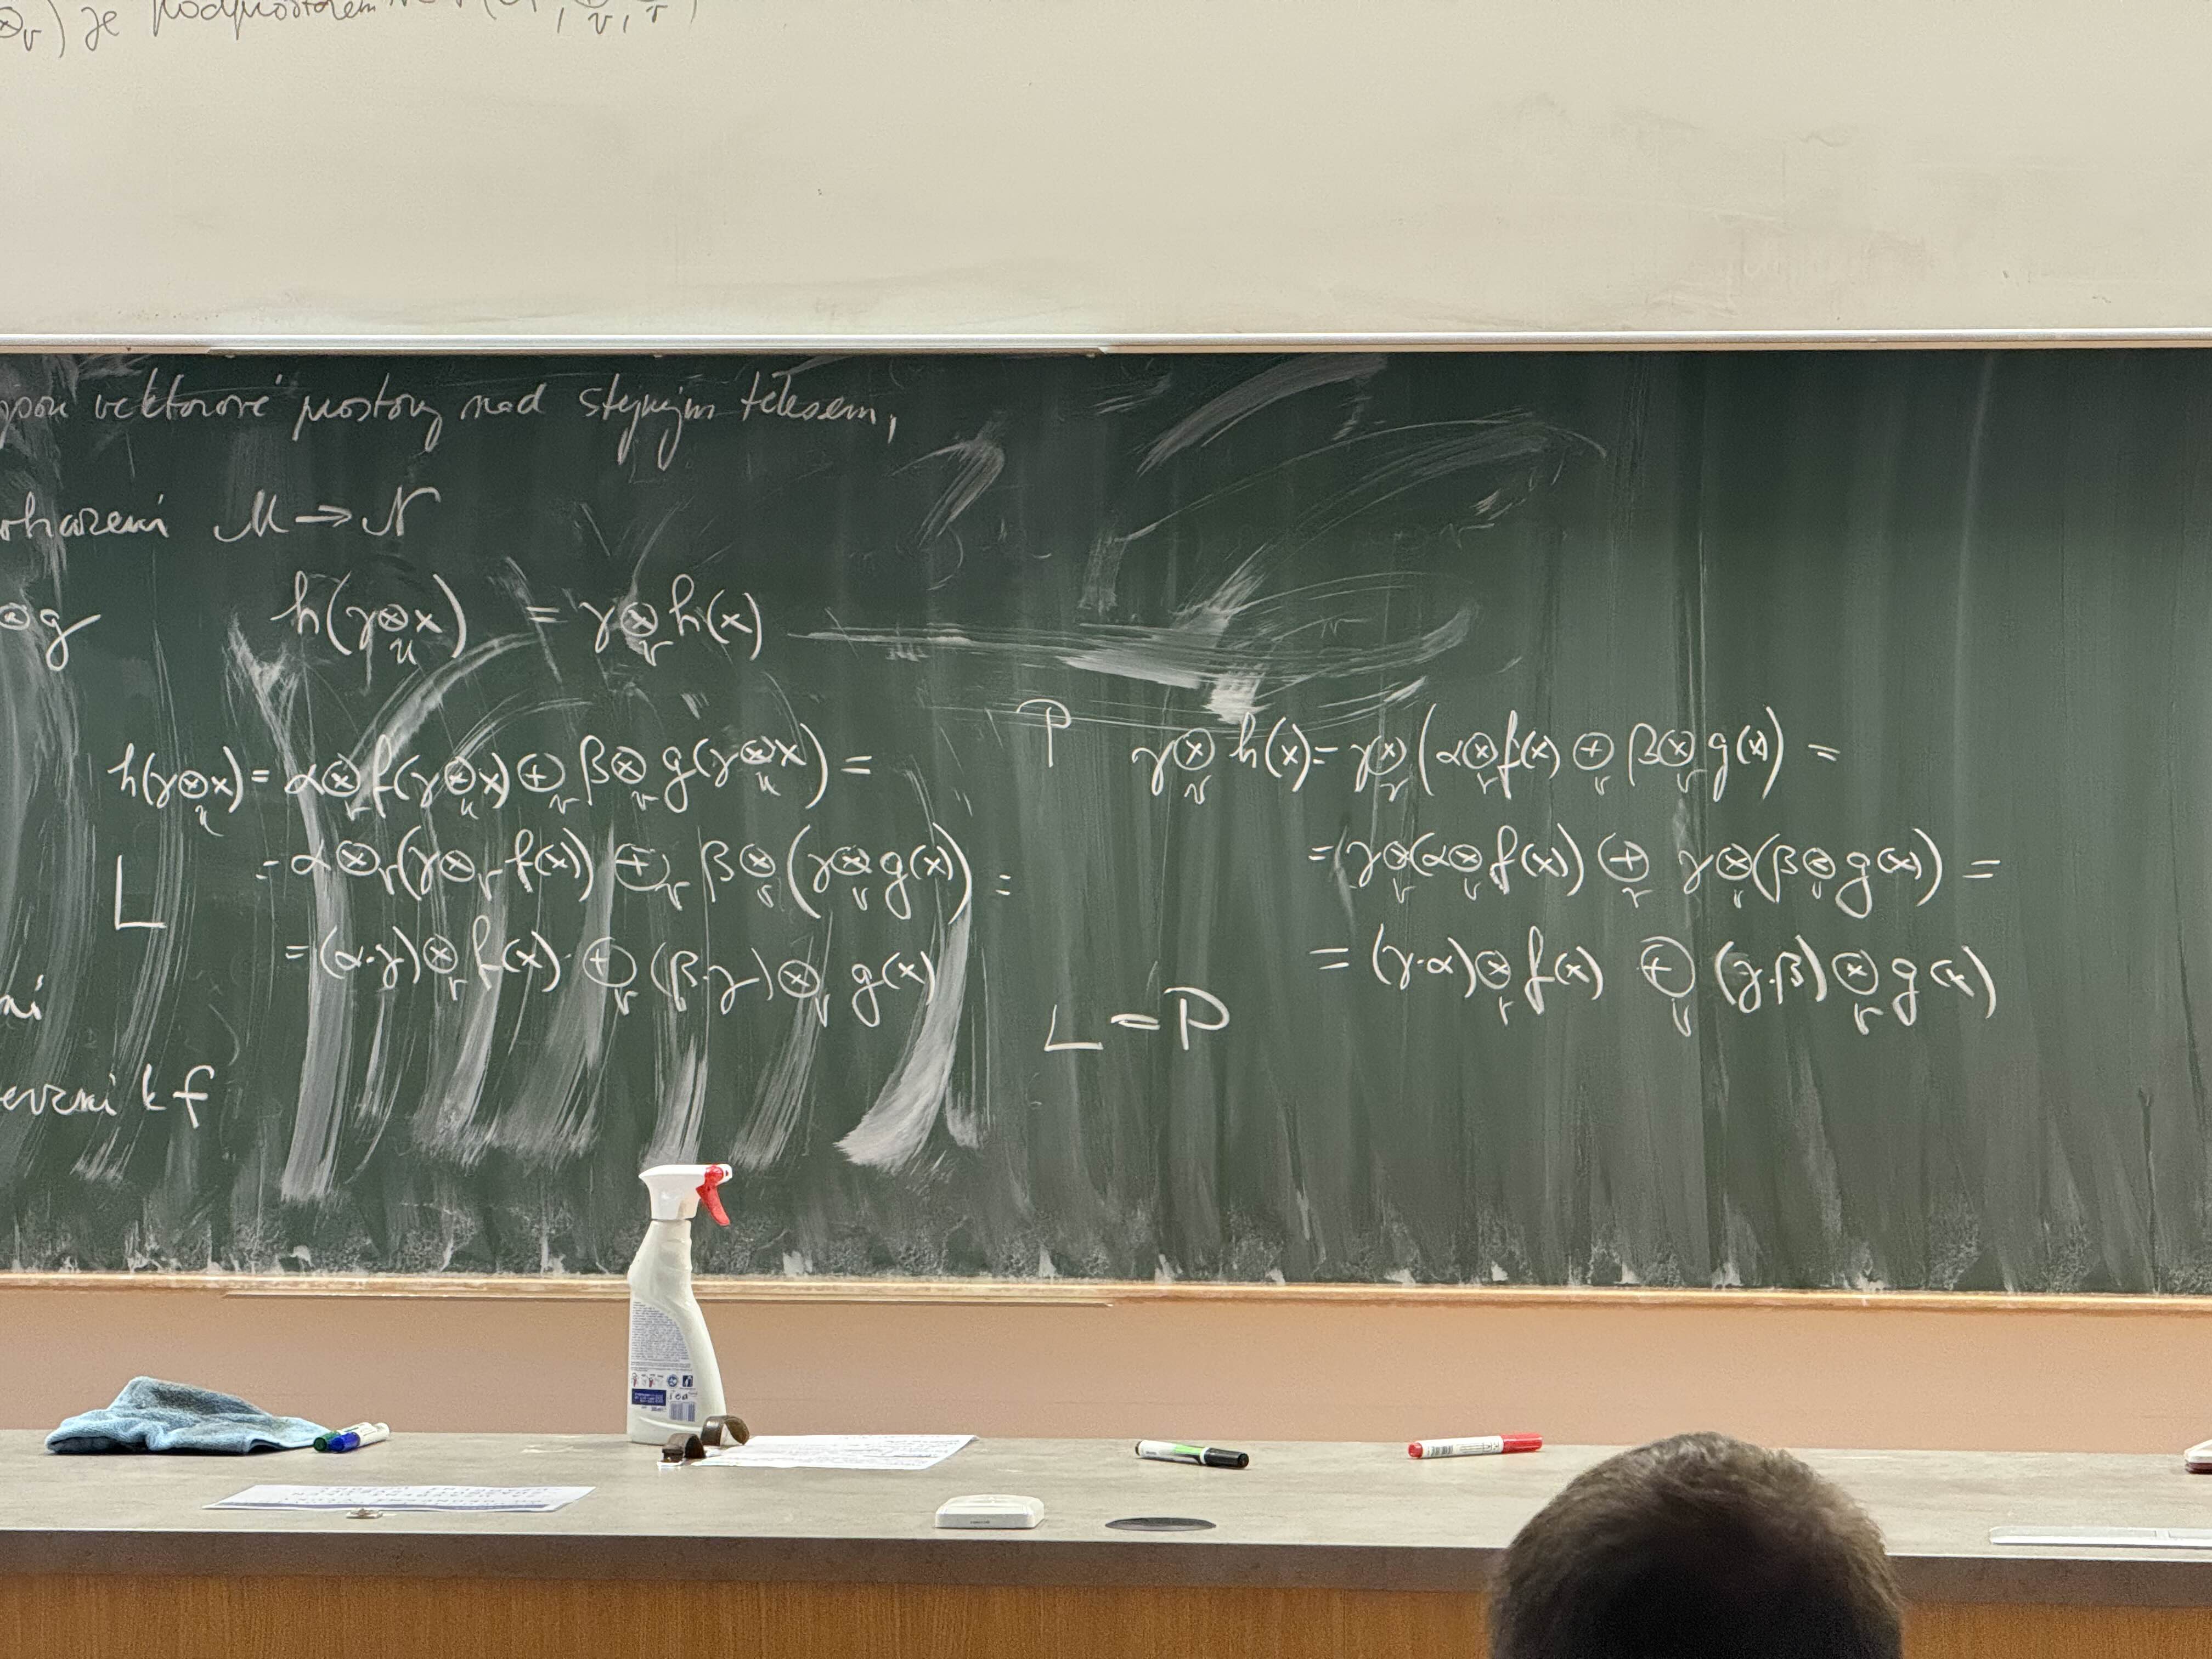 ⊗ᵥ) je podprostorem
jsou vektorové prostory nad stejným tělesem,
M → N
⊗g
h(γ⊗ᵤx) = γ⊗ᵥh(x)
h(γ⊗ᵤx) = α⊗ᵥf(γ⊗ᵤx)⊕ᵥβ⊗ᵥg(γ⊗ᵤx) =
L = α⊗ᵥ(γ⊗ᵥf(x)) ⊕ᵥ β⊗ᵥ(γ⊗ᵥg(x)) =
= (α·γ)⊗ᵥf(x) ⊕ᵥ (β·γ)⊗ᵥg(x)
P γ⊗ᵥh(x) = γ⊗ᵥ(α⊗ᵥf(x) ⊕ᵥ β⊗ᵥg(x)) =
= γ⊗ᵥ(α⊗ᵥf(x)) ⊕ᵥ γ⊗ᵥ(β⊗ᵥg(x)) =
= (γ·α)⊗ᵥf(x) ⊕ᵥ (γ·β)⊗ᵥg(x)
L = P
ní
k f